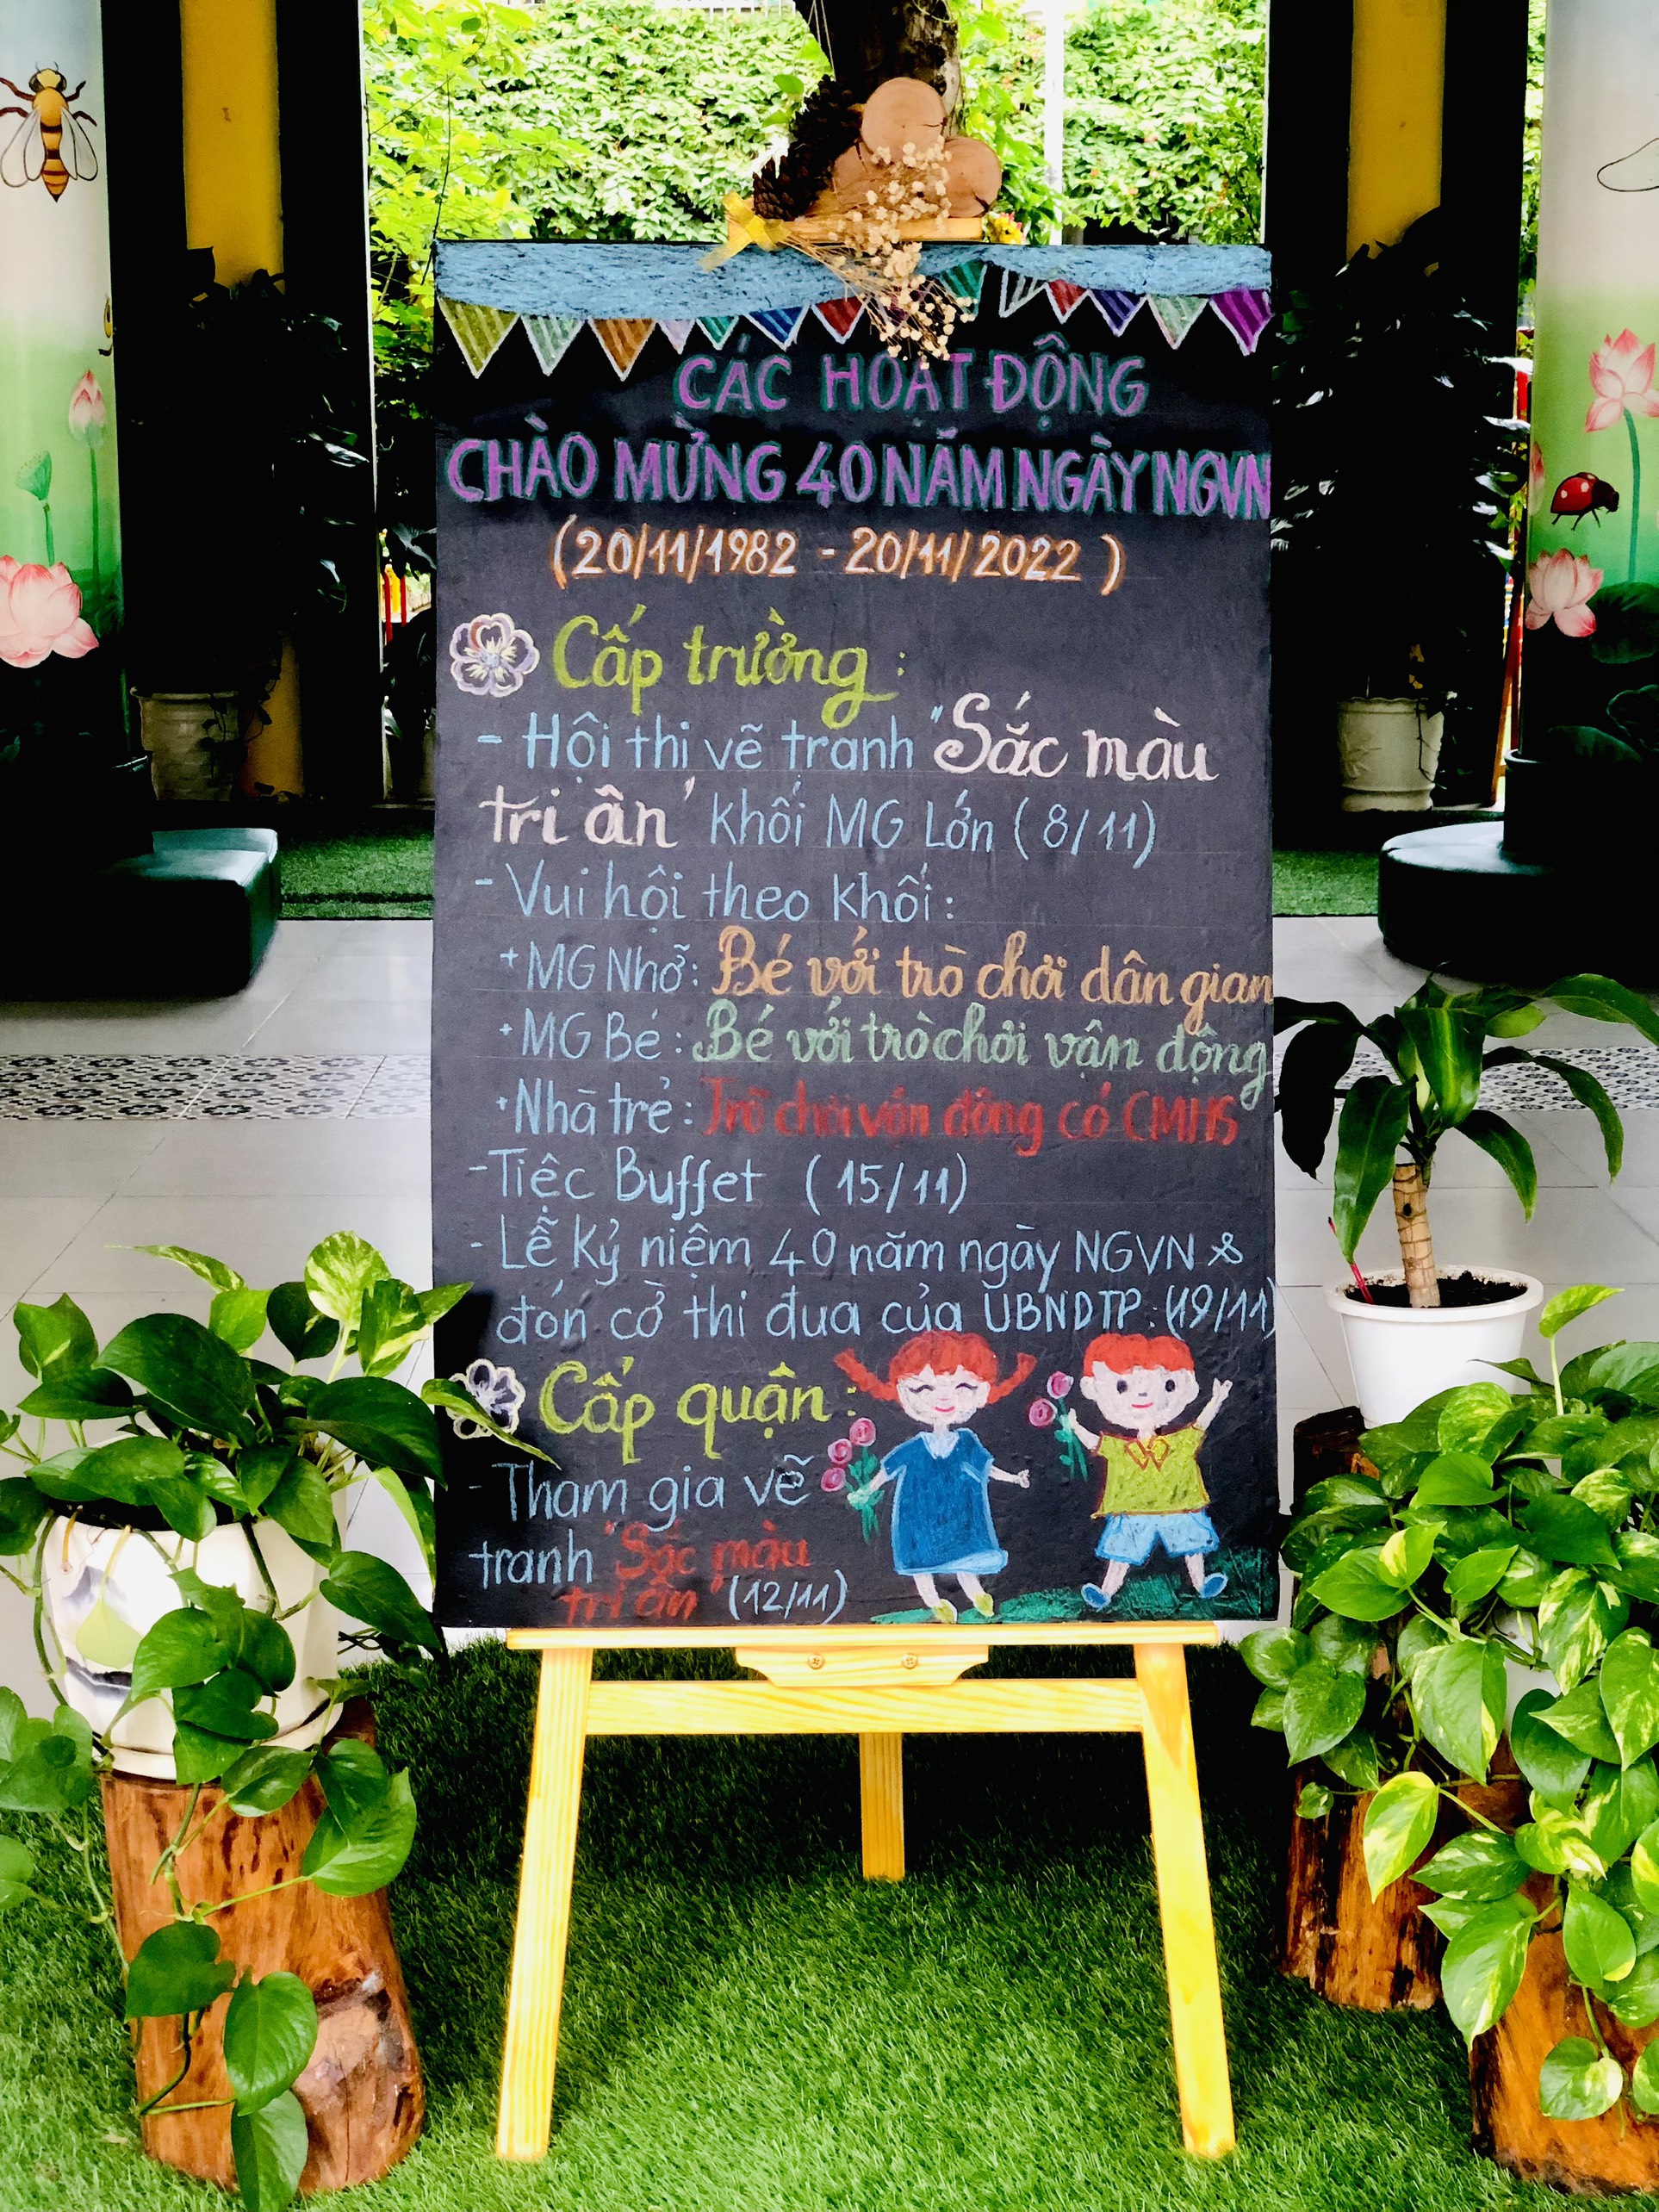 CÁC HOẠT ĐỘNG
CHÀO MỪNG 40 NĂM NGÀY NGVN
(20/11/1982 - 20/11/2022)
Cấp trường:
- Hội thi vẽ tranh "Sắc màu
tri ân" khối MG Lớn (8/11)
- Vui hội theo khối:
+ MG Nhỡ: Bé với trò chơi dân gian
+ MG Bé: Bé với trò chơi vận động
+ Nhà trẻ: Trò chơi vận động có CMHS
- Tiệc Buffet (15/11)
- Lễ kỷ niệm 40 năm ngày NGVN &
đón cờ thi đua của UBNDTP: (19/11)
Cấp quận:
- Tham gia vẽ
tranh "Sắc màu
tri ân" (12/11)